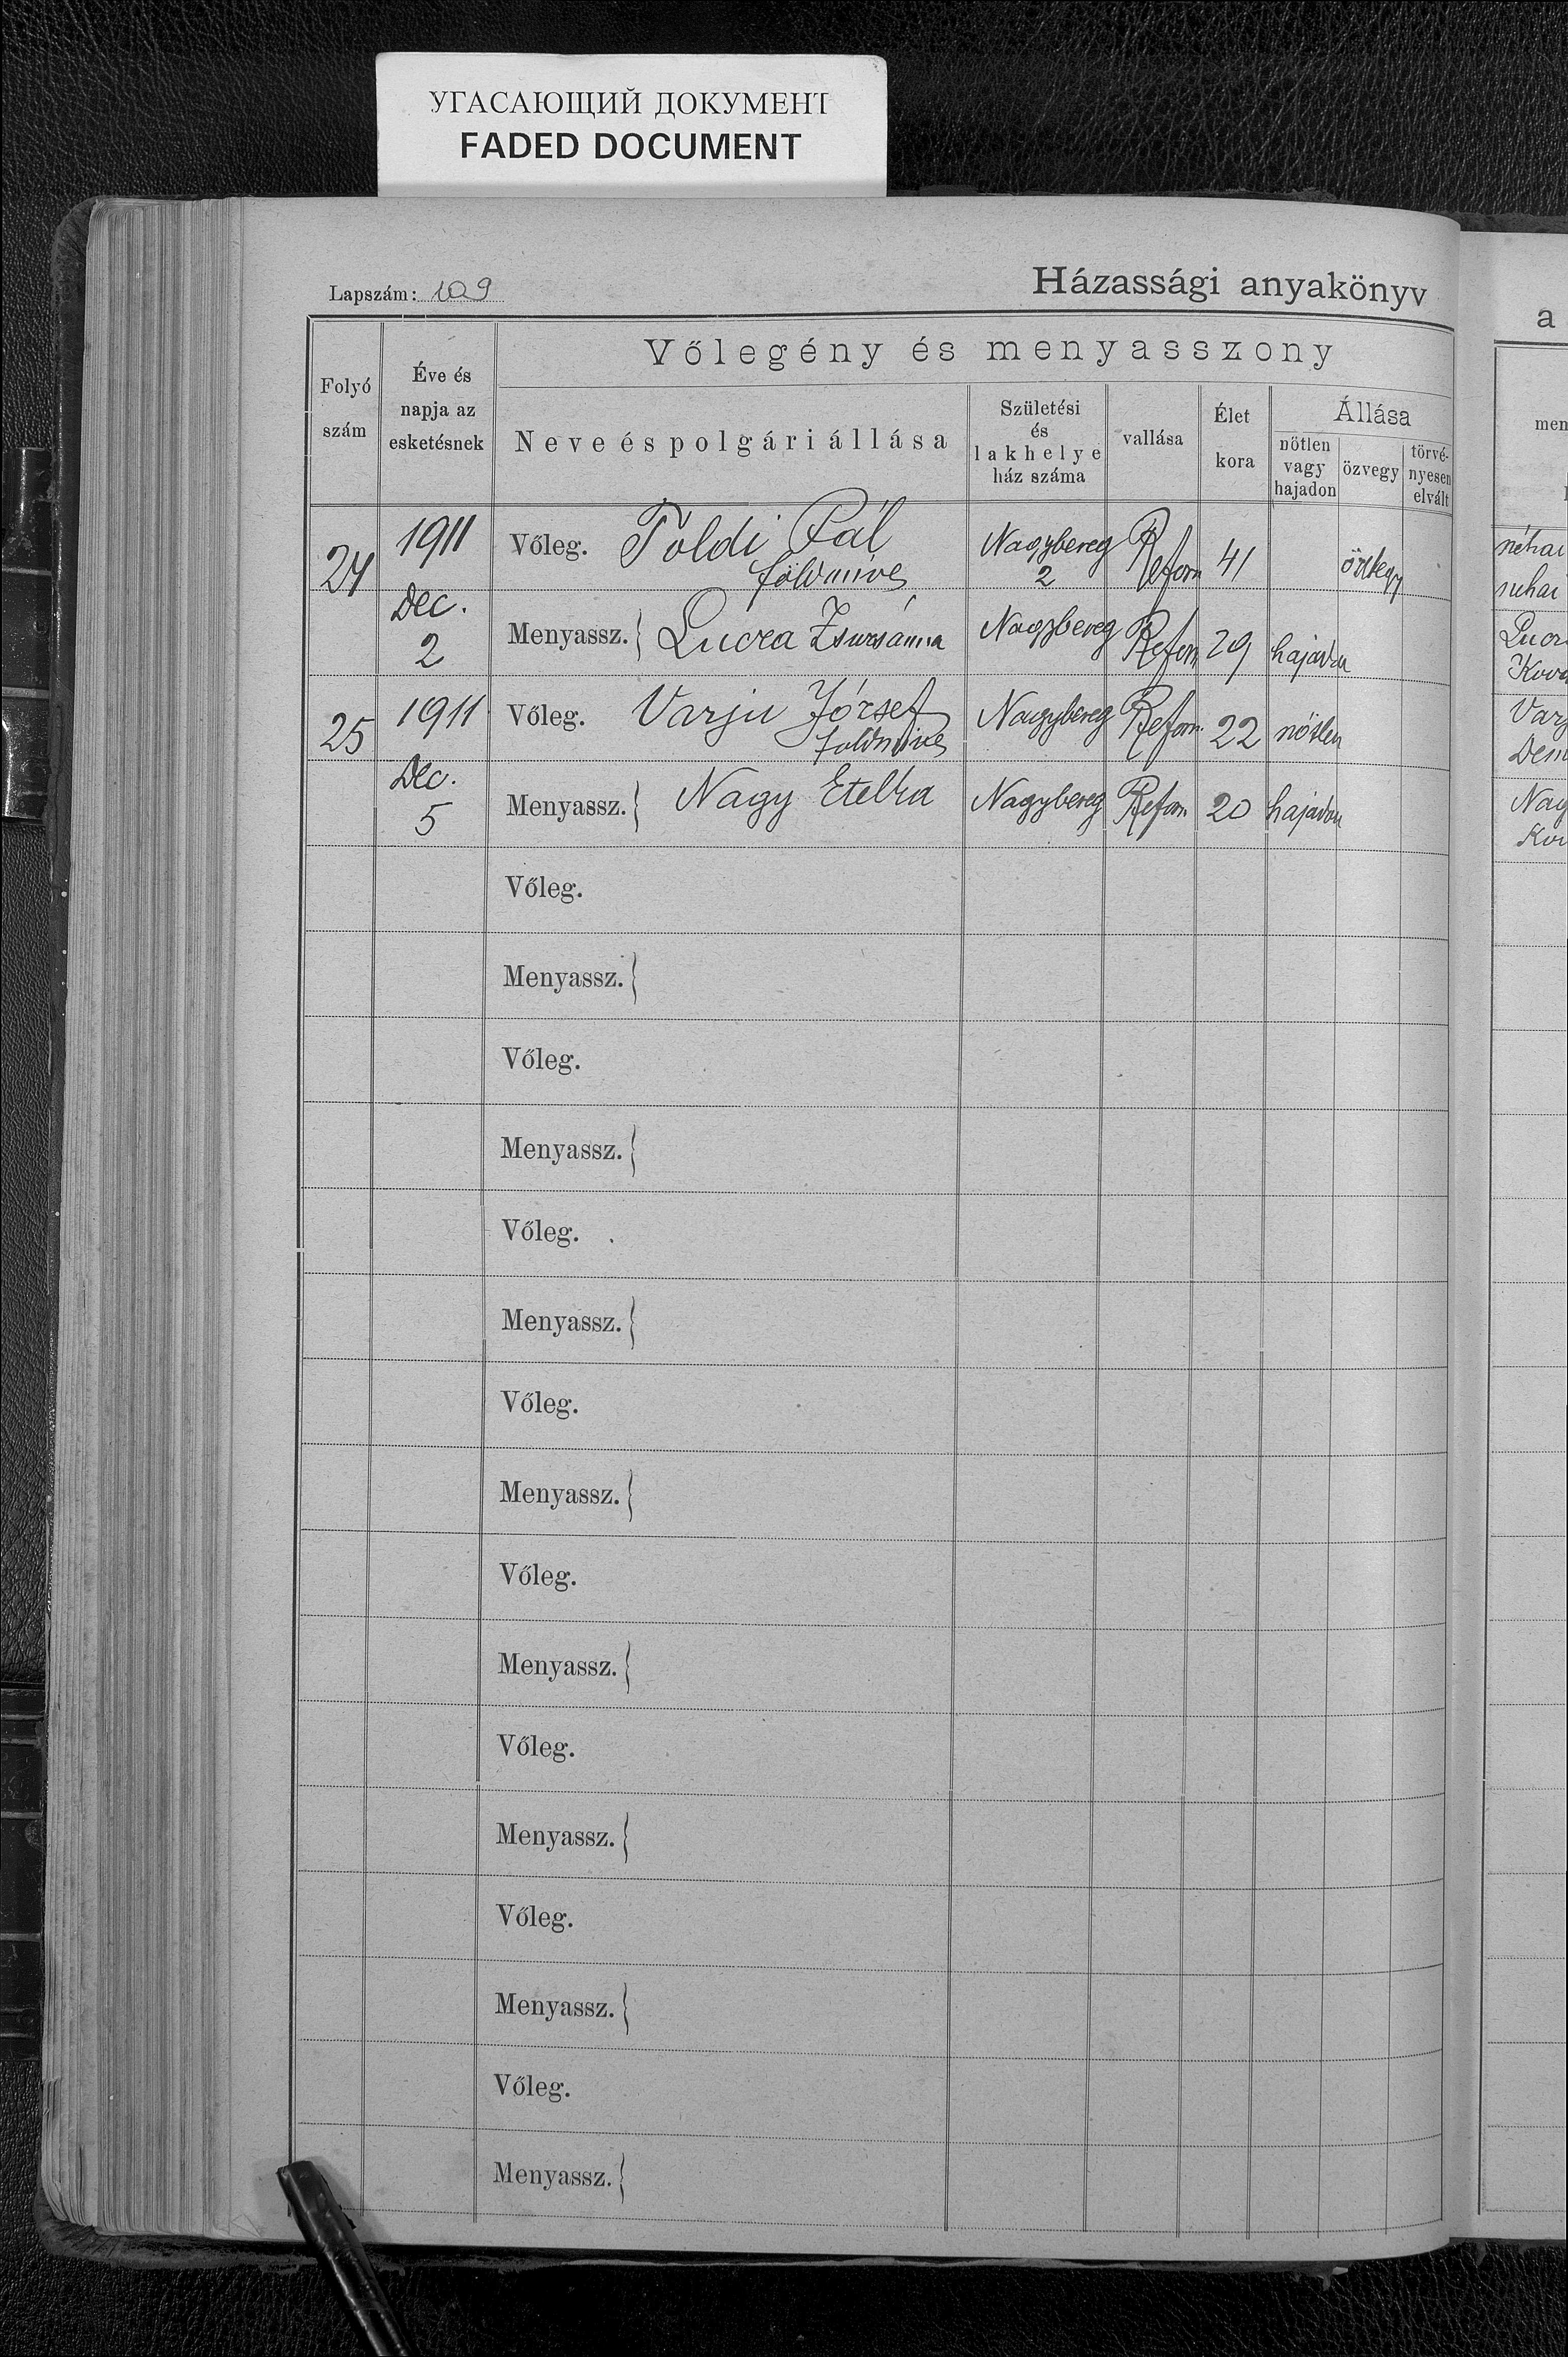 УГАСАЮЩИЙ ДОКУМЕНТ
FADED DOCUMENT
Lapszám: 109
Házassági anyakönyv
a
Folyó szám
Éve és napja az esketésnek
Vőlegény és menyasszony
Neve és polgári állása
Születési és lakhelye ház száma
vallása
Élet kora
Állása
nőtlen vagy hajadon
özvegy
törvényesen elvált
men
24 1911 Vőleg. Toldi Pál Nagybereg Reform 41 özvegy néhai
földmíves 2
Dec. 2 Menyassz. Lucza Zsuzsánna Nagybereg Reform 29 hajadon
25 1911 Vőleg. Varju József Nagybereg Reform. 22 nőtlen
földmíves
Dec. 5 Menyassz. Nagy Etelka Nagybereg Reform 20 hajadon
Vőleg.
Menyassz.
Vőleg.
Menyassz.
Vőleg.
Menyassz.
Vőleg.
Menyassz.
Vőleg.
Menyassz.
Vőleg.
Menyassz.
Vőleg.
Menyassz.
Vőleg.
Menyassz.